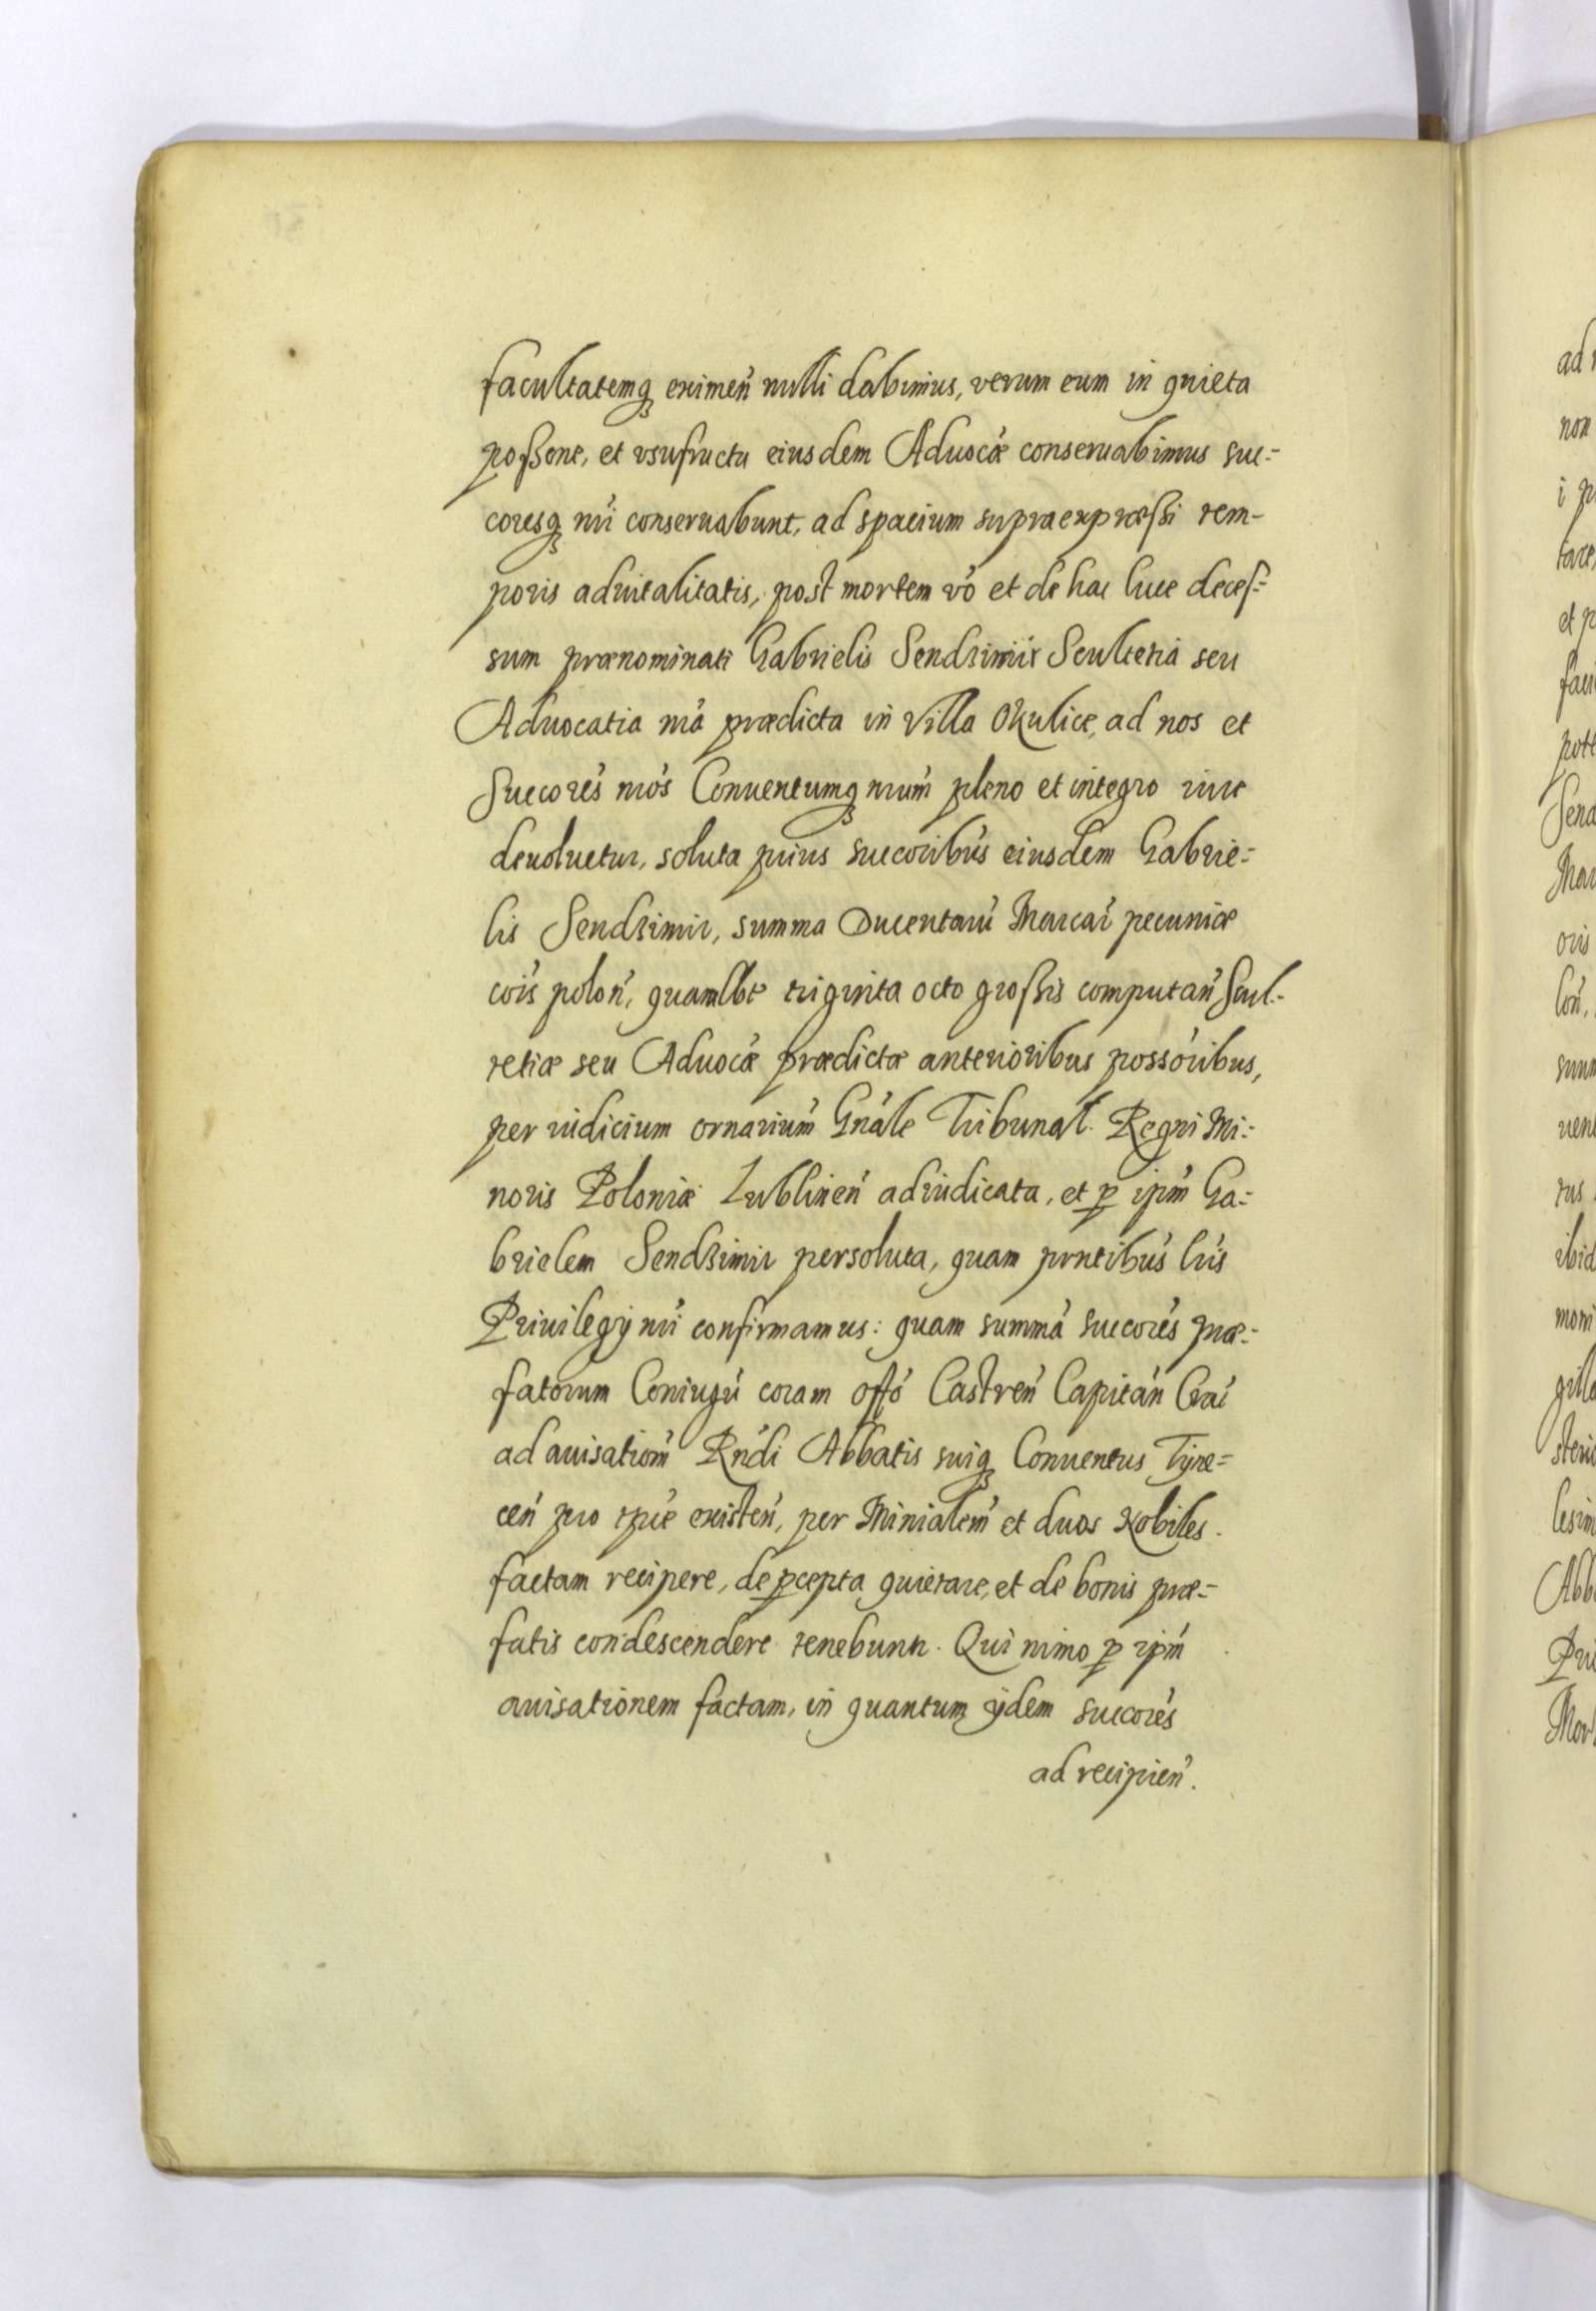 facultatemq₃ eximeń nulli dabimus, verum eum in quieta
poſsone, et vsufructu eiusdem Aduocáe conseruabimus suc-
coresq₃ nŕi conseruabunt, ad spacium supraexpræſsi tem-
poris aduitalitatis, post mortem vó et de hac luce deceſ-
sum prænominati Gabrielis Sendzimir Scultetia seu
Aduocatia nŕa prædicta in Villa Okulice, ad nos et
Succorés nŕos Conuentumq₃ nŕum pleno et integro iure
deuoluetur, soluta prius succoribús eiusdem Gabrie-
lis Sendzimir, summa Ducentarú Marcaŕ pecuniæ
cóis poloń, quamlbt triginta octo groſsis computań Scul-
tetiæ seu Aduocáe prædictæ anterioribus possóribus,
per iudicium ornariuḿ Gnále Tribunal. Regni Mi-
noris Poloniæ Lublineń adiudicata, et ꝑ ipḿ Ga-
brielem Sendzimir persoluta, quam prńtibús lŕis
Priuilegij nŕi confirmamus: quam summá succorés præ-
fatorum Coniugú coram offó Castreń Capitáń Crać
ad auisatioḿ Rńdi Abbatis suiq₃ Conuentus Tyne-
ceń pro tpŕe existeń, per Miniáleḿ et duos Nobiles.
factam recipere, de ꝑcepta quietare, et de bonis præ-
fatis condescendere tenebuntr. Qui nimo ꝑ ipḿ
auisationem factam, in quantum ijdem succorés
ad recipień.
ad
non
i
et p
fac
pote
Send
Mar
oris
loń,
sum
uen
tus
ibid
mon
gillo
sterie
lesim
Abb
Pri